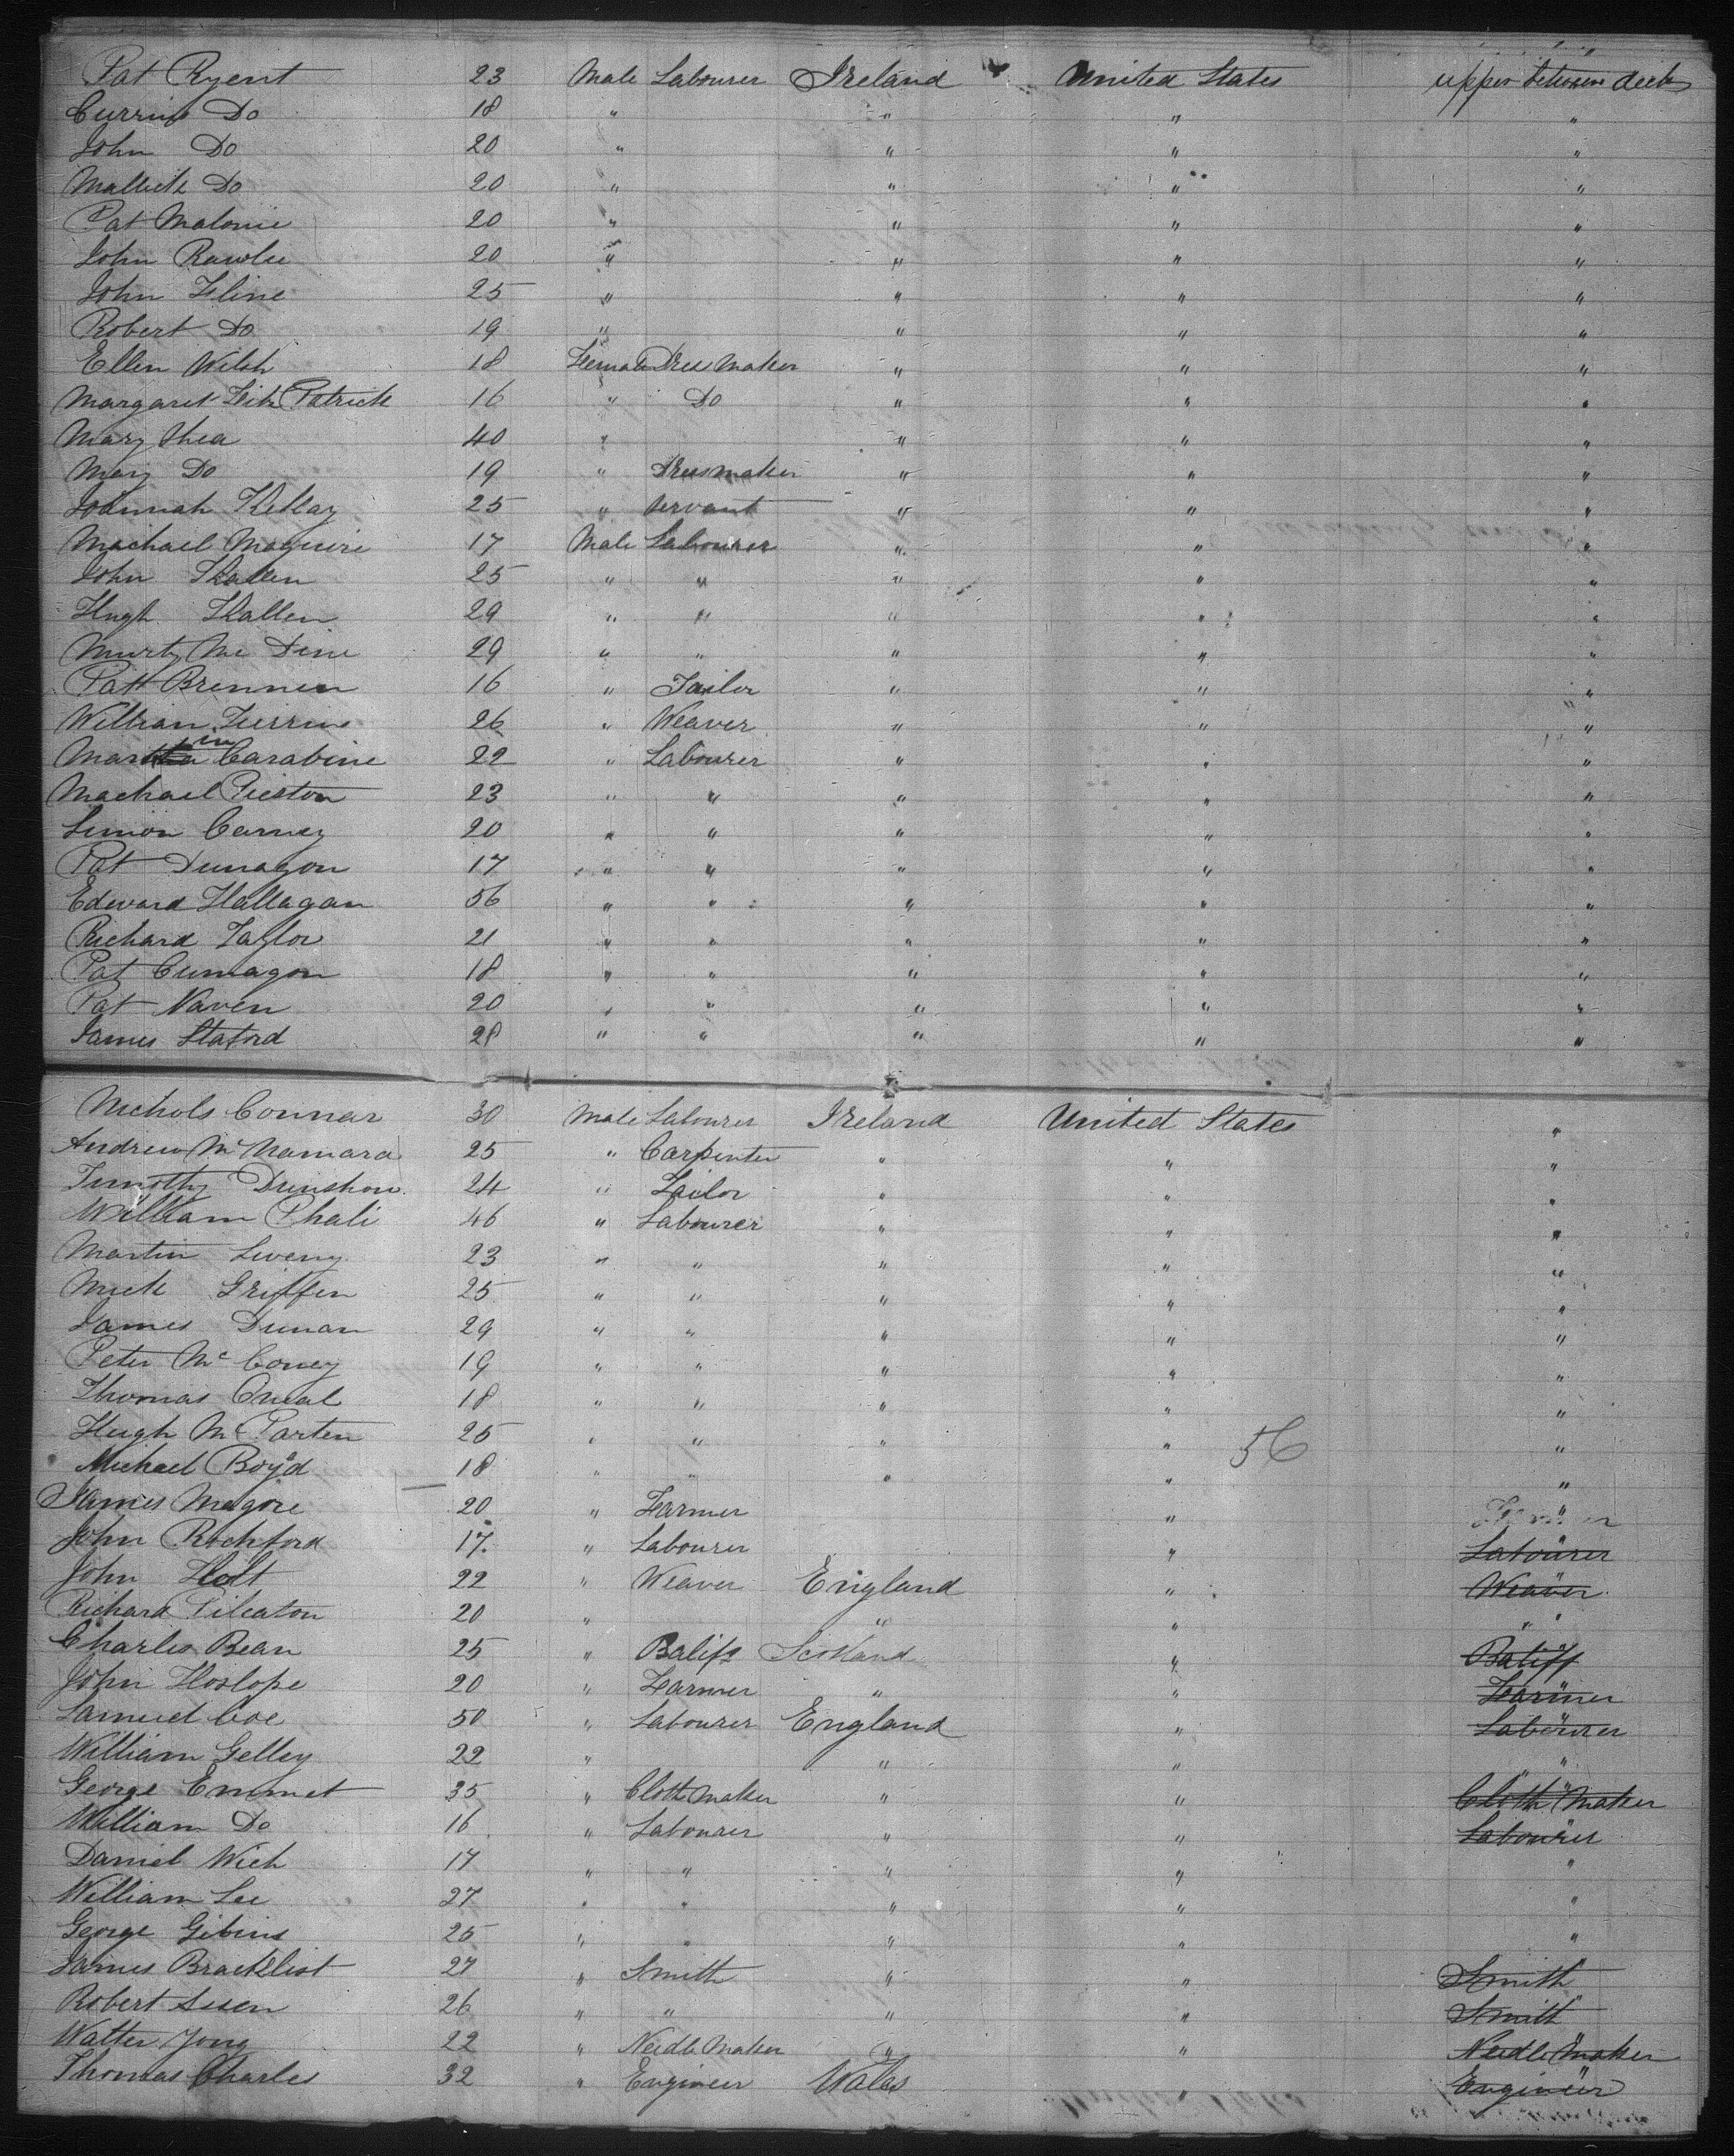 Pat Ryent 23 Male Labourer Ireland United States upper between decks
Currins Do 18 " " " "
John Do 20 " " " "
Do 20 " " " "
Pat Malonie 20 " " " "
John Rawlie 20 " " " "
John Fline 25 " " " "
Robert Do 19 " " " "
Ellen Wilsh 18 Female Dres Maker " " "
Margaret Fitz Patrick 16 " Do " " "
Mary Shea 40 " " " "
Mary Do 19 " Dresmaker " " "
Johannah Kellay 25 " Servant " " "
Machael Maguire 17 Male Labourer " " "
John 25 " " " " "
Hugh 29 " " " " "
Murty Mc Dine 29 " " " " "
Patt Brennen 16 " Tailor " " "
William 26 " Weaver " " "
Martin Carabine 22 " Labourer " " "
Machael Pieston 23 " " " " "
Simon Carney 20 " " " " "
Pat Dunagon 17 " " " " "
Edward Hallagan 56 " " " " "
Richard Taylor 21 " " " " "
Pat Cunnagon 18 " " " " "
Pat Naven 20 " " " " "
James Staford 28 " " " " "
Nichols Connar 30 Male Labourer Ireland United States "
Andrew Mc Namara 25 " Carpenter " " "
Timothy Dunshow 24 " Tailor " " "
William Phali 46 " Labourer " " "
Martin Sweny 23 " " " " "
Mick Griffen 25 " " " " "
James Dunan 29 " " " " "
Peter Mc Coney 19 " " " " "
Thomas Oneal 18 " " " " "
Hugh Mc Parten 25 " " " " 56 "
Michael Boyd 18 " " " " "
James Magore 20 " Farmer " Farmer "
John Rochford 17 " Labourer " Labourer "
John Holt 22 " Weaver England " Weaver "
Richard Pileaton 20 " " " " "
Charles Bean 25 " Balif Scotland " Baliff "
John Hoslope 20 " Farmer " " Farmer "
Samuel Coe 50 " Labourer England " Labourer "
William Gelley 22 " " " "
George Emmet 35 " Cloth Maker " " Cloth Maker "
William Do 16 " Labourer " " Labourer "
Daniel Wich 17 " " " " "
William Lee 27 " " " " "
George Gibins 25 " " " " "
James Bracklist 27 " Smith " " Smith "
Robert Sisen 26 " " " " Smith "
Walter Yong 22 " Needle Maker " " Needle Maker "
Thomas Charles 32 " Engineer Wales " Engineer "